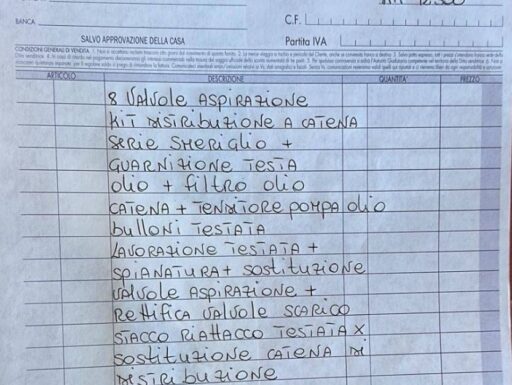 BANCA
C.F.
SALVO APPROVAZIONE DELLA CASA
Partita IVA
CONDIZIONI GENERALI DI VENDITA
ARTICOLO DESCRIZIONE QUANTITÀ PREZZO
8 VALVOLE ASPIRAZIONE
KIT DISTRIBUZIONE A CATENA
SERIE SMERIGLIO +
GUARNIZIONE TESTA
OLIO + FILTRO OLIO
CATENA + TENDITORE POMPA OLIO
BULLONI TESTATA
LAVORAZIONE TESTATA +
SPIANATURA + SOSTITUZIONE
VALVOLE ASPIRAZIONE +
RETTIFICA VALVOLE SCARICO
STACCO RIATTACCO TESTATA X
SOSTITUZIONE CATENA DI
DISTRIBUZIONE